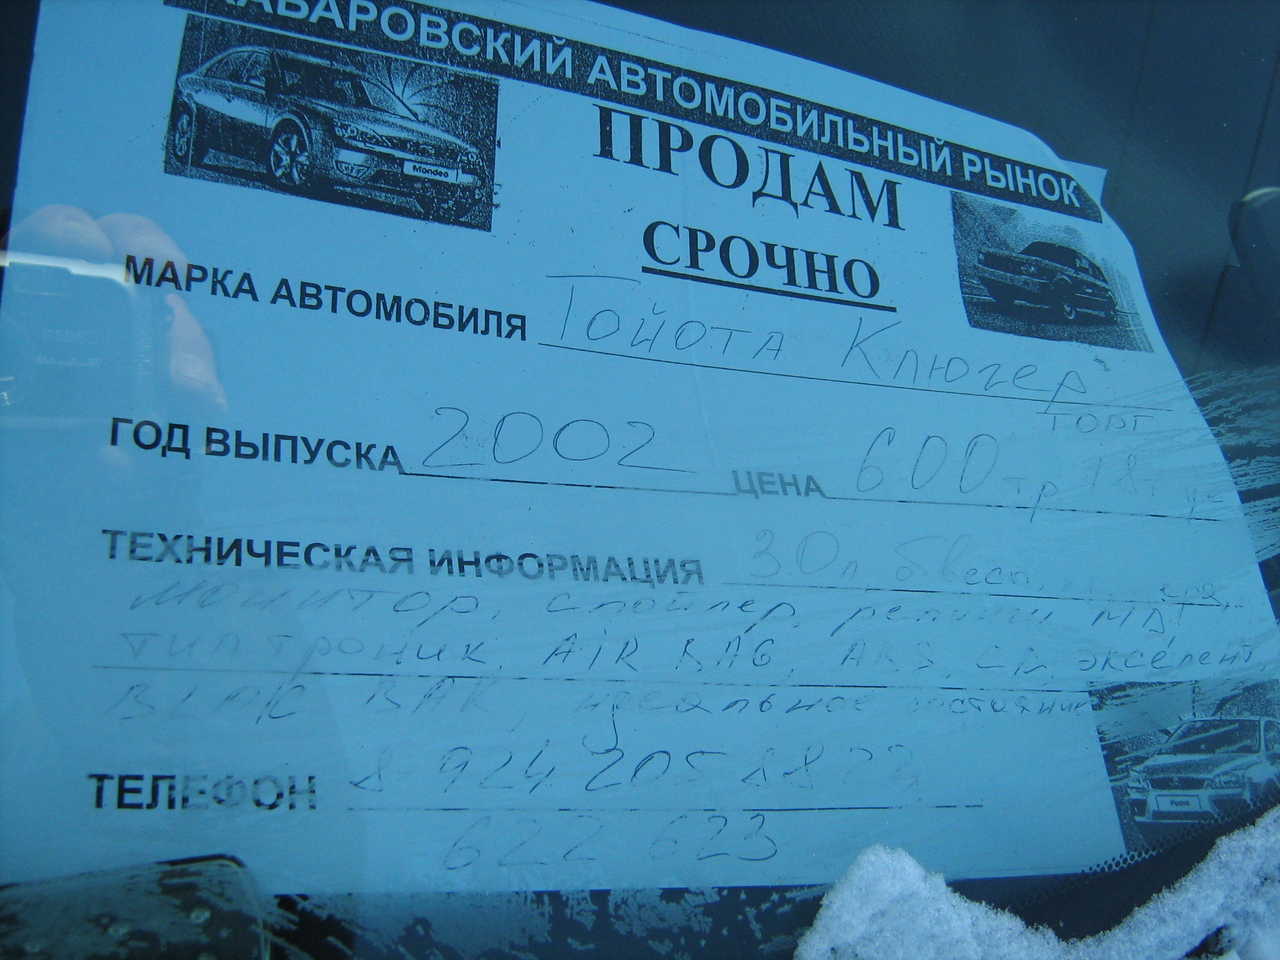 ХАБАРОВСКИЙ АВТОМОБИЛЬНЫЙ РЫНОК
Mondeo
ПРОДАМ
СРОЧНО
МАРКА АВТОМОБИЛЯ Тойота Клюгер
торг
ГОД ВЫПУСКА 2002 ЦЕНА 600 тр
ТЕХНИЧЕСКАЯ ИНФОРМАЦИЯ 30л
монитор, спойлер,
типтроник, AIR BAG, ABS, CD, экселент,
идеальное состояние
ТЕЛЕФОН 8 924 205
622 623